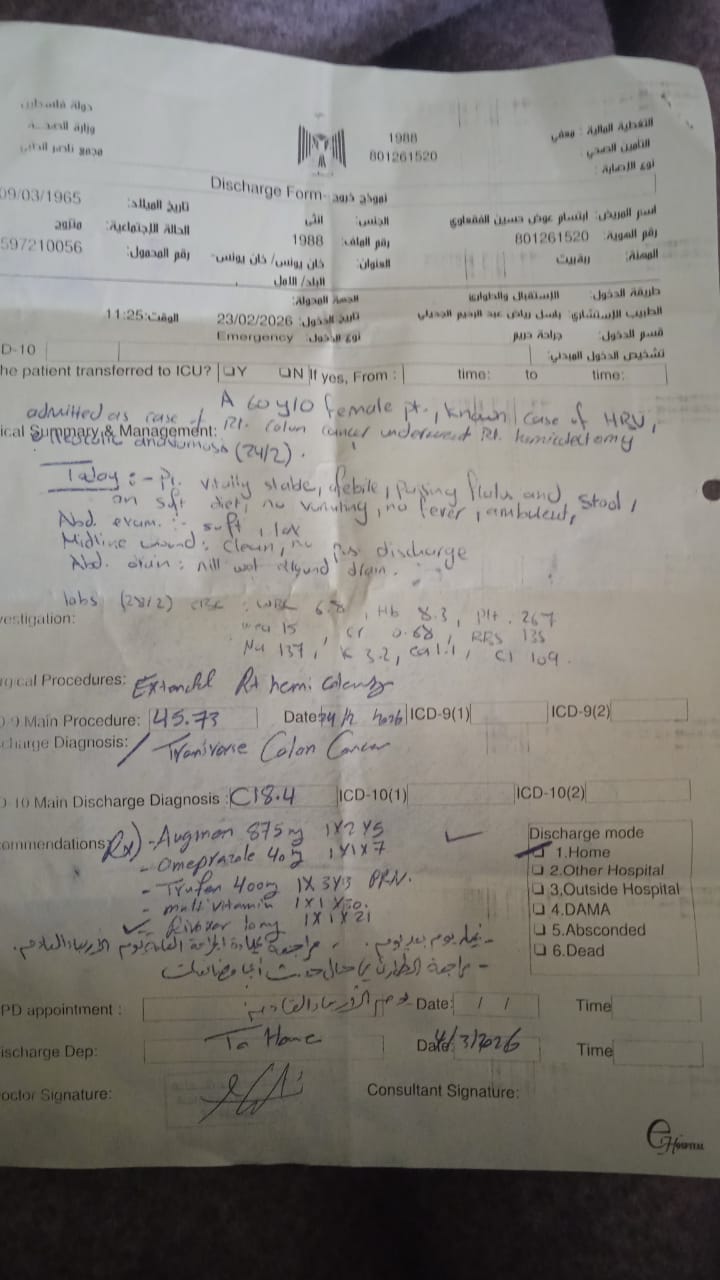 دولة فلسطين
وزارة الصحة
مجمع ناصر الطبي
1988
801261520
التغطية المالية: معفي
التأمين الصحي:
نوع الإصابة:
Discharge Form- نموذج خروج
اسم المريض: ابتسام عوض حسين الفقعاوي الجنس: انثى تاريخ الميلاد: 09/03/1965
رقم الهوية: 801261520 رقم الملف: 1988 الحالة الاجتماعية: متزوج
المهنة: ربة بيت العنوان: خان يونس/ خان يونس- البلد/ الأول رقم المحمول: 597210056
طريقة الدخول: الإستقبال والطوارئ الجهة المحولة:
الطبيب الإستشاري: باسل رياض عبد الرحيم تاريخ الدخول: 23/02/2026 الوقت: 11:25
قسم الدخول: جراحة حريم نوع الدخول: Emergency
تشخيص الدخول المبدئي:
D-10
he patient transferred to ICU? Y N If yes, From : time: to time:
ical Summary & Management: A 60 y/o female pt., known case of
admitted as case of Rt. colon cancer underwent Rt.
(24/2).
Today :- Pt. vitally stable, passing flatus and stool,
on soft diet, no vomiting, no fever, ambulent,
Abd. exam :- soft, lax
Midline wound: clean, no discharge
Abd. drain: nill drain.
vestigation: labs (28/2) CBC: WBC 6.8, Hb 8.3, Plt. 267
Urea 15, Cr 0.68, RBS 135
Na 137, K 3.2, Ca 1.1, Cl 109.
rgical Procedures: Extended Rt hemi
0-9 Main Procedure: 45.73 Date: 24/2/2026 ICD-9(1) ICD-9(2)
charge Diagnosis: Transverse Colon Cancer
D 10 Main Discharge Diagnosis : C18.4 ICD-10(1) ICD-10(2)
ommendations: Rx) - Augmen 875 mg 1X2X5
- Omeprazole 40 1X1X7
- Trufen 400 mg 1X3X3 PRN.
- multivitamin 1X1X30.
1X1X21
Discharge mode
1.Home
2.Other Hospital
3.Outside Hospital
4.DAMA
5.Absconded
6.Dead
- غيار يوم بعد يوم. - مراجعة عيادة الجراحة العامة يوم الأربعاء القادم.
- مراجعة الطوارئ حال حدوث أي مضاعفات
PD appointment : يوم الأربعاء القادم Date: / / Time
ischarge Dep: To Home Date: 4/3/2026 Time
octor Signature: Consultant Signature:
e Hospital